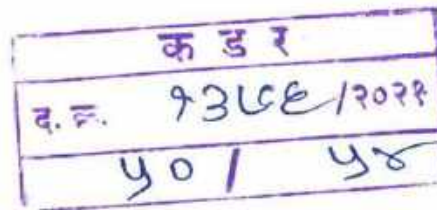 क ड र
द. क्र. १३७६/२०२१
५० / ५४